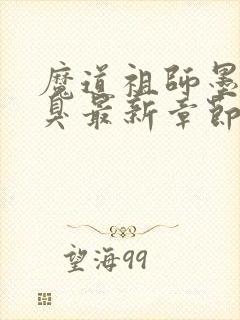 魔道祖师墨
臭最新章節
望海99